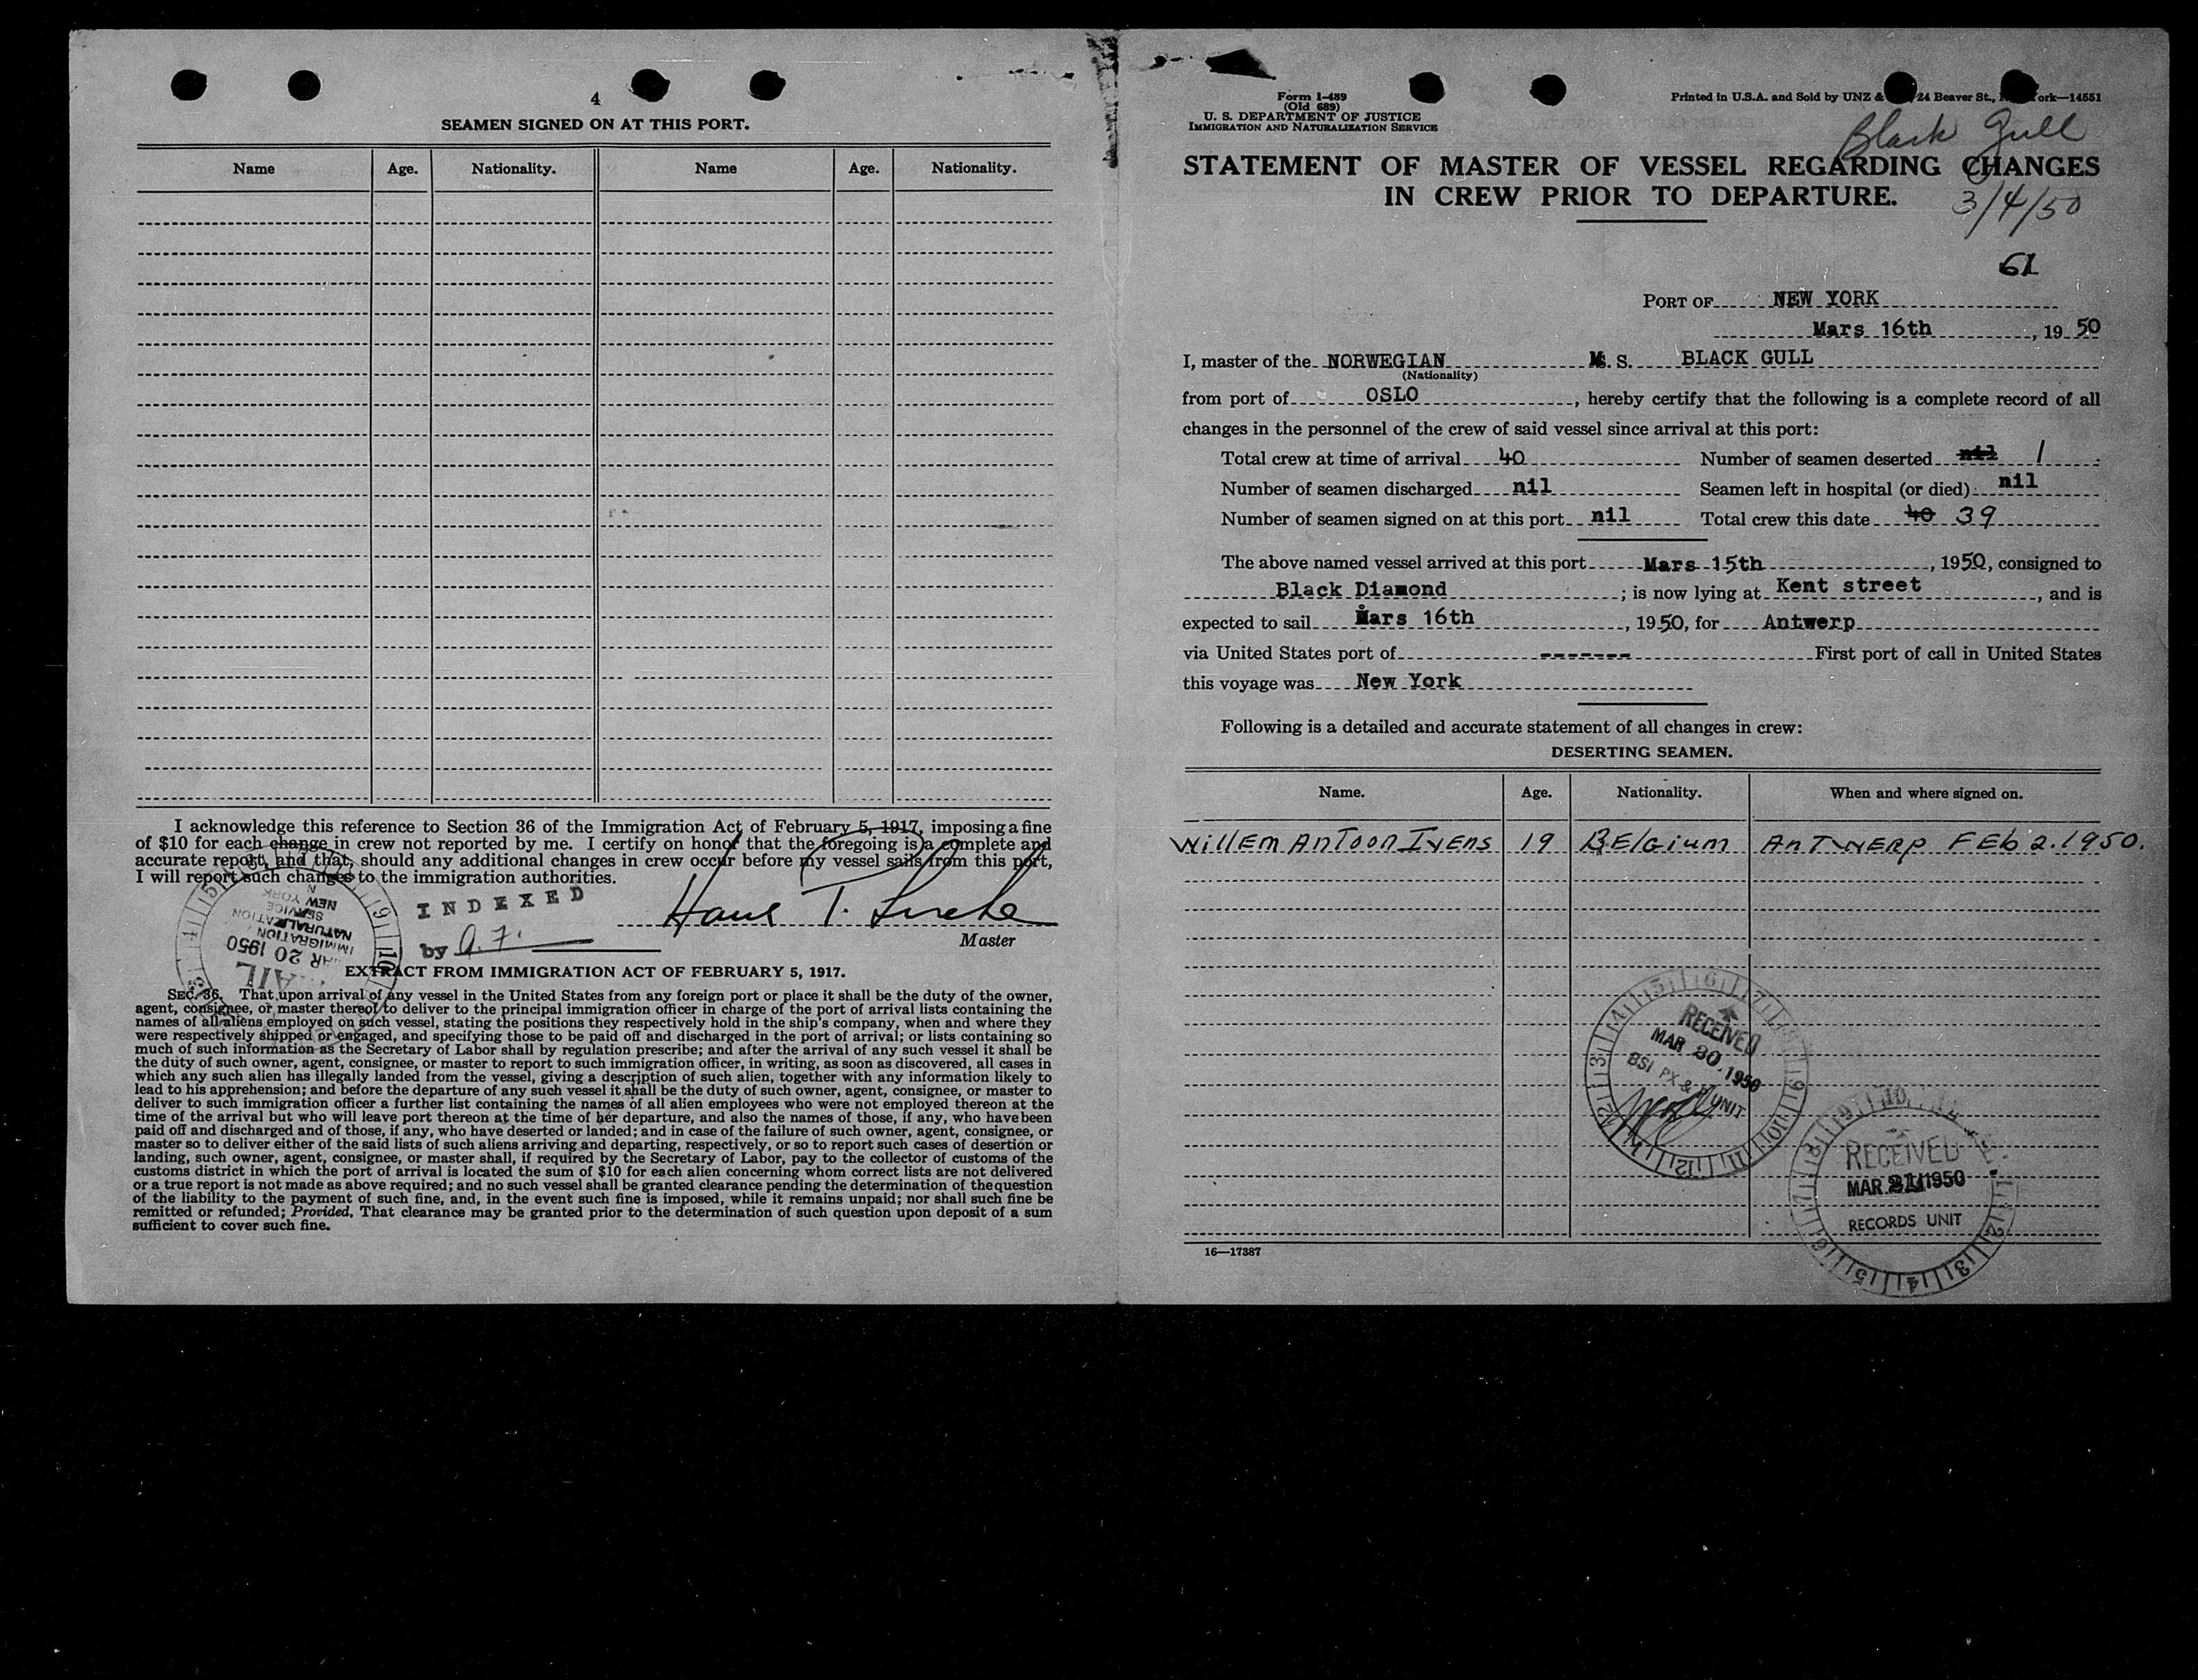 4
SEAMEN SIGNED ON AT THIS PORT.
Name Age. Nationality. Name Age. Nationality.
I acknowledge this reference to Section 36 of the Immigration Act of February 5, 1917, imposing a fine
of $10 for each change in crew not reported by me. I certify on honor that the foregoing is a complete and
accurate report, and that, should any additional changes in crew occur before my vessel sails from this port,
I will report such changes to the immigration authorities.
INDEXED
by a.f.
Hans T.
Master
MAR 20 1950
IMMIGRATION
NATURALIZATION
SERVICE
NEW YORK
EXTRACT FROM IMMIGRATION ACT OF FEBRUARY 5, 1917.
SEC. 36. That upon arrival of any vessel in the United States from any foreign port or place it shall be the duty of the owner,
agent, consignee, or master thereof to deliver to the principal immigration officer in charge of the port of arrival lists containing the
names of all aliens employed on such vessel, stating the positions they respectively hold in the ship's company, when and where they
were respectively shipped or engaged, and specifying those to be paid off and discharged in the port of arrival; or lists containing so
much of such information as the Secretary of Labor shall by regulation prescribe; and after the arrival of any such vessel it shall be
the duty of such owner, agent, consignee, or master to report to such immigration officer, in writing, as soon as discovered, all cases in
which any such alien has illegally landed from the vessel, giving a description of such alien, together with any information likely to
lead to his apprehension; and before the departure of any such vessel it shall be the duty of such owner, agent, consignee, or master to
deliver to such immigration officer a further list containing the names of all alien employees who were not employed thereon at the
time of the arrival but who will leave port thereon at the time of her departure, and also the names of those, if any, who have been
paid off and discharged and of those, if any, who have deserted or landed; and in case of the failure of such owner, agent, consignee, or
master so to deliver either of the said lists of such aliens arriving and departing, respectively, or so to report such cases of desertion or
landing, such owner, agent, consignee, or master shall, if required by the Secretary of Labor, pay to the collector of customs of the
customs district in which the port of arrival is located the sum of $10 for each alien concerning whom correct lists are not delivered
or a true report is not made as above required; and no such vessel shall be granted clearance pending the determination of the question
of the liability to the payment of such fine, and, in the event such fine is imposed, while it remains unpaid; nor shall such fine be
remitted or refunded; Provided, That clearance may be granted prior to the determination of such question upon deposit of a sum
sufficient to cover such fine.
Form I-489
(Old 689)
U. S. DEPARTMENT OF JUSTICE
IMMIGRATION AND NATURALIZATION SERVICE
Printed in U.S.A. and Sold by UNZ & 24 Beaver St., ork—14551
Black Gull
STATEMENT OF MASTER OF VESSEL REGARDING CHANGES
IN CREW PRIOR TO DEPARTURE.
3/4/50
61
PORT OF NEW YORK
Mars 16th, 19 50
I, master of the NORWEGIAN M. S. BLACK GULL
(Nationality)
from port of OSLO, hereby certify that the following is a complete record of all
changes in the personnel of the crew of said vessel since arrival at this port:
Total crew at time of arrival 40 Number of seamen deserted nil 1
Number of seamen discharged nil Seamen left in hospital (or died) nil
Number of seamen signed on at this port nil Total crew this date 40 39
The above named vessel arrived at this port Mars 15th, 1950, consigned to
Black Diamond; is now lying at Kent street, and is
expected to sail Mars 16th, 1950, for Antwerp
via United States port of ------- First port of call in United States
this voyage was New York
Following is a detailed and accurate statement of all changes in crew:
DESERTING SEAMEN.
Name. Age. Nationality. When and where signed on.
Willem Antoon Ivens 19 Belgium Antwerp Feb 2. 1950.
RECEIVED
MAR 20 1950
BSI PX & UNIT
RECEIVED
MAR 21 1950
RECORDS UNIT
16—17387